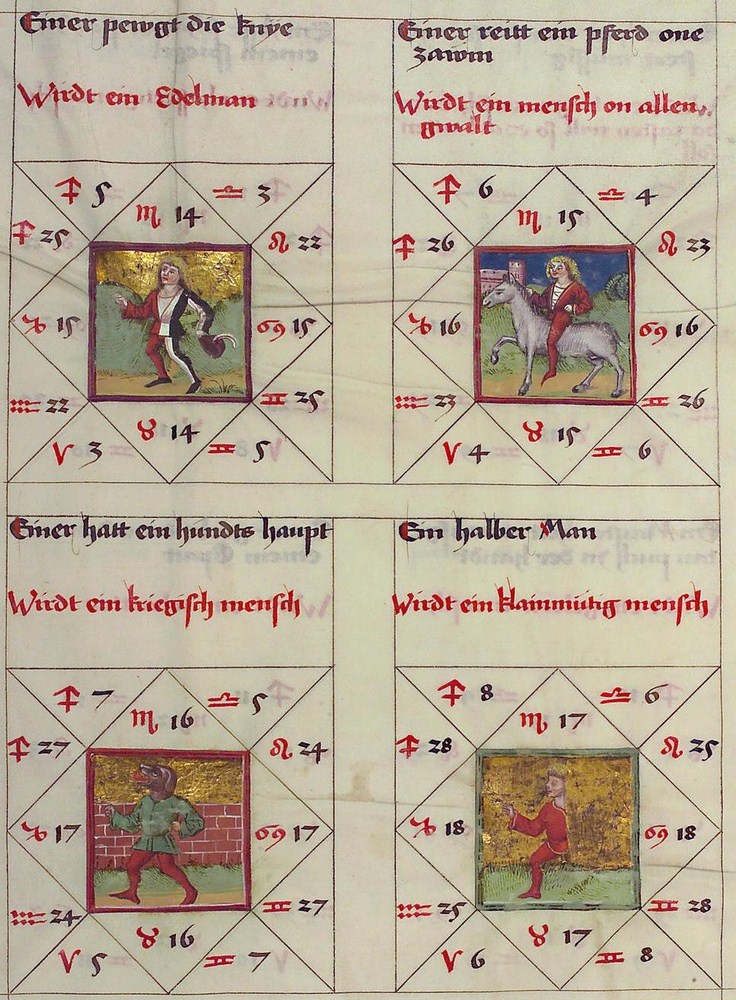 Einer pewgt die knye
Wirdt ein Edelman
♐ 5 ♎ 3
♏ 14
♐ 25 ♌ 22
♑ 15 ♋ 15
♒ 22 ♊ 25
♉ 14
♈ 3 ♊ 5
Einer reitt ein pferd one
zawm
Wirdt ein mensch on allen
gwalt
♐ 6 ♎ 4
♏ 15
♐ 26 ♌ 23
♑ 16 ♋ 16
♒ 23 ♊ 26
♉ 15
♈ 4 ♊ 6
Einer hatt ein hundts haupt
Wirdt ein kriegisch mensch
♐ 7 ♎ 5
♏ 16
♐ 27 ♌ 24
♑ 17 ♋ 17
♒ 24 ♊ 27
♉ 16
♈ 5 ♊ 7
Ein halber Man
Wirdt ein klainmütig mensch
♐ 8 ♎ 6
♏ 17
♐ 28 ♌ 25
♑ 18 ♋ 18
♒ 25 ♊ 28
♉ 17
♈ 6 ♊ 8